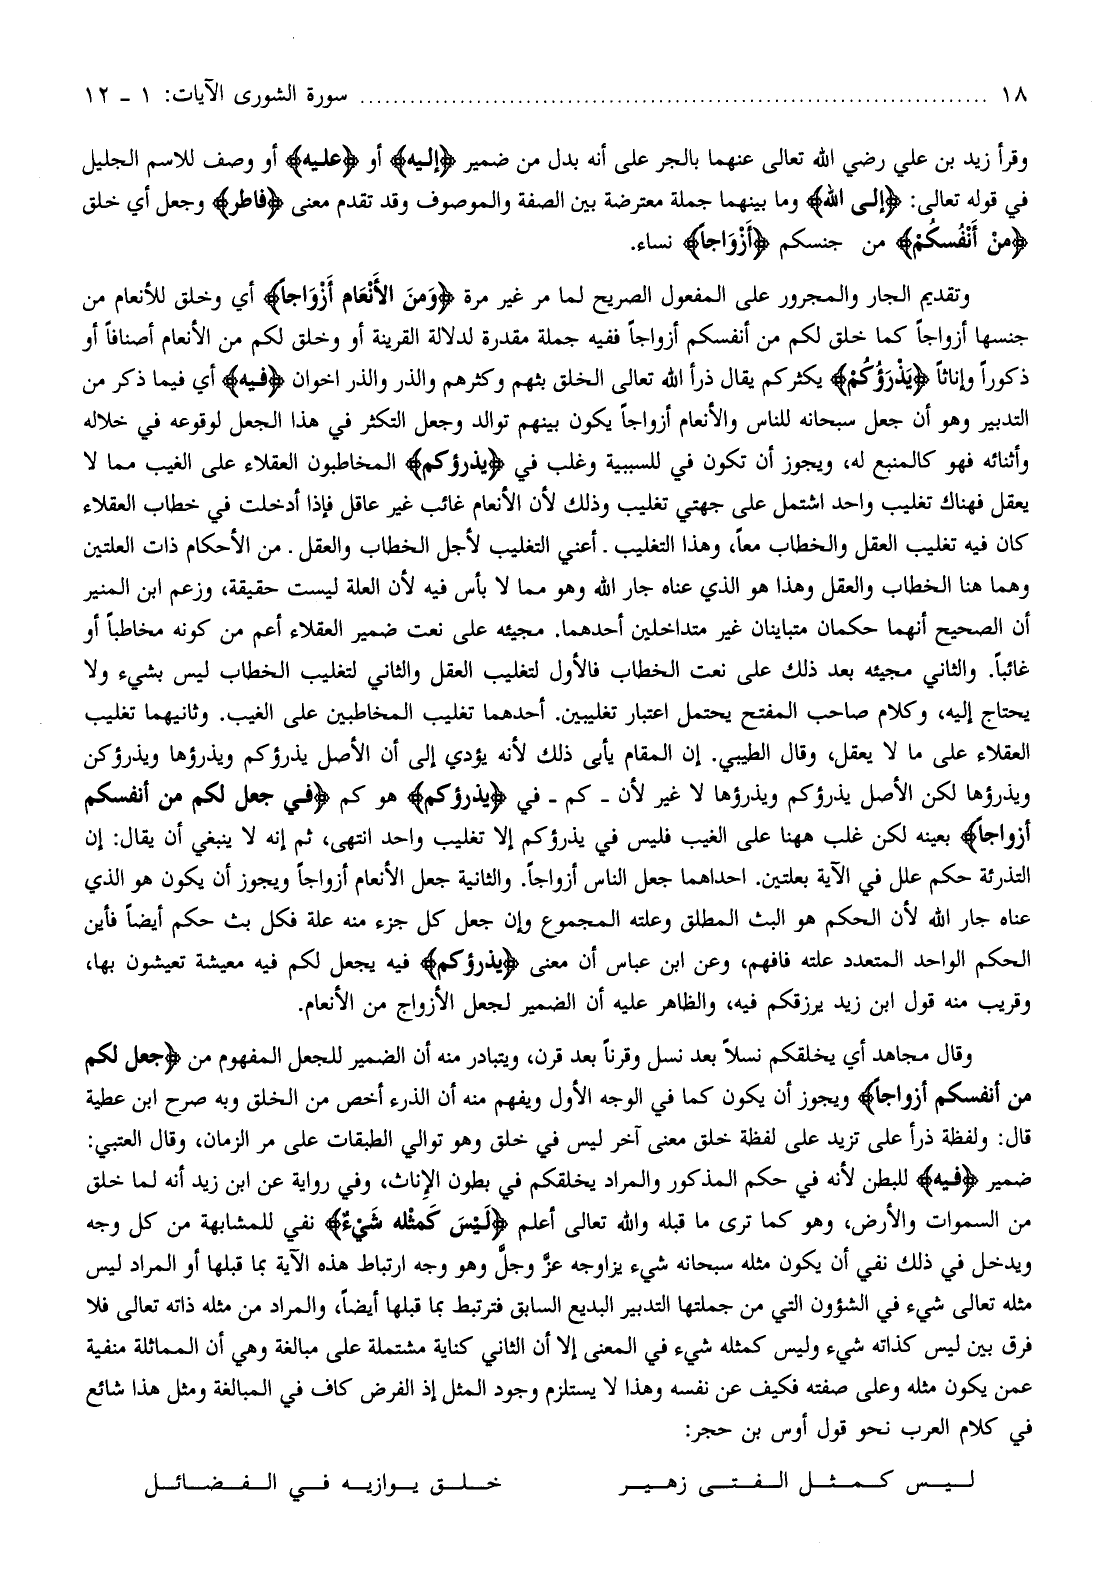 ١٨ ........................................ سورة الشورى الآيات: ١ ـ ١٢
وقرأ زيد بن علي رضي الله تعالى عنهما بالجر على أنه بدل من ضمير ﴿إليه﴾ أو ﴿عليه﴾ أو وصف للاسم الجليل
في قوله تعالى: ﴿إلى الله﴾ وما بينهما جملة معترضة بين الصفة والموصوف وقد تقدم معنى ﴿فاطر﴾ وجعل أي خلق
﴿منْ أَنْفُسكُمْ﴾ من جنسكم ﴿أَزْوَاجاً﴾ نساء.
وتقديم الجار والمجرور على المفعول الصريح لما مر غير مرة ﴿وَمنَ الأَنْعَام أَزْوَاجاً﴾ أي وخلق للأنعام من
جنسها أزواجاً كما خلق لكم من أنفسكم أزواجاً ففيه جملة مقدرة لدلالة القرينة أو وخلق لكم من الأنعام أصنافاً أو
ذكوراً وإناثاً ﴿يَذْرَؤُكُمْ﴾ يكثركم يقال ذرأ الله تعالى الخلق بثهم وكثرهم والذر والذر اخوان ﴿فيه﴾ أي فيما ذكر من
التدبير وهو أن جعل سبحانه للناس والأنعام أزواجاً يكون بينهم توالد وجعل التكثر في هذا الجعل لوقوعه في خلاله
وأثنائه فهو كالمنبع له، ويجوز أن تكون في للسببية وغلب في ﴿يذرؤكم﴾ المخاطبون العقلاء على الغيب مما لا
يعقل فهناك تغليب واحد اشتمل على جهتي تغليب وذلك لأن الأنعام غائب غير عاقل فإذا أدخلت في خطاب العقلاء
كان فيه تغليب العقل والخطاب معاً، وهذا التغليب ـ أعني التغليب لأجل الخطاب والعقل ـ من الأحكام ذات العلتين
وهما هنا الخطاب والعقل وهذا هو الذي عناه جار الله وهو مما لا بأس فيه لأن العلة ليست حقيقة، وزعم ابن المنير
أن الصحيح أنهما حكمان متباينان غير متداخلين أحدهما. مجيئه على نعت ضمير العقلاء أعم من كونه مخاطباً أو
غائباً. والثاني مجيئه بعد ذلك على نعت الخطاب فالأول لتغليب العقل والثاني لتغليب الخطاب ليس بشيء ولا
يحتاج إليه، وكلام صاحب المفتح يحتمل اعتبار تغليبين. أحدهما تغليب المخاطبين على الغيب. وثانيهما تغليب
العقلاء على ما لا يعقل، وقال الطيبي. إن المقام يأبى ذلك لأنه يؤدي إلى أن الأصل يذرؤكم ويذرؤها ويذرؤكن
ويذرؤها لكن الأصل يذرؤكم ويذرؤها لا غير لأن ـ كم ـ في ﴿يذرؤكم﴾ هو كم ﴿في جعل لكم من أنفسكم
أزواجاً﴾ بعينه لكن غلب ههنا على الغيب فليس في يذرؤكم إلا تغليب واحد انتهى، ثم إنه لا ينبغي أن يقال: إن
التذرئة حكم علل في الآية بعلتين. احداهما جعل الناس أزواجاً. والثانية جعل الأنعام أزواجاً ويجوز أن يكون هو الذي
عناه جار الله لأن الحكم هو البث المطلق وعلته المجموع وإن جعل كل جزء منه علة فكل بث حكم أيضاً فأين
الحكم الواحد المتعدد علته فافهم، وعن ابن عباس أن معنى ﴿يذرؤكم﴾ فيه يجعل لكم فيه معيشة تعيشون بها،
وقريب منه قول ابن زيد يرزقكم فيه، والظاهر عليه أن الضمير لجعل الأزواج من الأنعام.
وقال مجاهد أي يخلقكم نسلاً بعد نسل وقرناً بعد قرن، ويتبادر منه أن الضمير للجعل المفهوم من ﴿جعل لكم
من أنفسكم أزواجاً﴾ ويجوز أن يكون كما في الوجه الأول ويفهم منه أن الذرء أخص من الخلق وبه صرح ابن عطية
قال: ولفظة ذرأ على تزيد على لفظة خلق معنى آخر ليس في خلق وهو توالي الطبقات على مر الزمان، وقال العتبي:
ضمير ﴿فيه﴾ للبطن لأنه في حكم المذكور والمراد يخلقكم في بطون الإناث، وفي رواية عن ابن زيد أنه لما خلق
من السموات والأرض، وهو كما ترى ما قبله والله تعالى أعلم ﴿لَيْسَ كَمثْله شَيْءٌ﴾ نفي للمشابهة من كل وجه
ويدخل في ذلك نفي أن يكون مثله سبحانه شيء يزاوجه عزَّ وجلَّ وهو وجه ارتباط هذه الآية بما قبلها أو المراد ليس
مثله تعالى شيء في الشؤون التي من جملتها التدبير البديع السابق فترتبط بما قبلها أيضاً، والمراد من مثله ذاته تعالى فلا
فرق بين ليس كذاته شيء وليس كمثله شيء في المعنى إلا أن الثاني كناية مشتملة على مبالغة وهي أن المماثلة منفية
عمن يكون مثله وعلى صفته فكيف عن نفسه وهذا لا يستلزم وجود المثل إذ الفرض كاف في المبالغة ومثل هذا شائع
في كلام العرب نحو قول أوس بن حجر:
ليس كمثل الفتى زهير خلق يوازيه في الفضائل